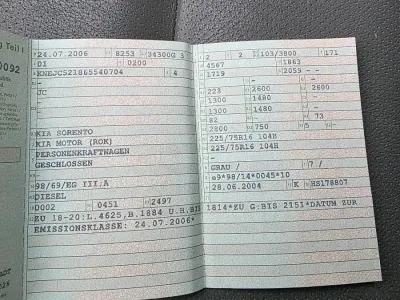 g Teil I
0092
24.07.2006 8253 34300G 3
01 0200
KNEJC521865540704 4
-
JC
KIA SORENTO
KIA MOTOR (ROK)
PERSONENKRAFTWAGEN
GESCHLOSSEN
98/69/EG III;A
DIESEL
0002 0451 2497
ZU 18-20:L.4625,B.1884 U.H.BIS
EMISSIONSKLASSE: 24.07.2006*
2 2 103/3800 171
4567 1863
1719 2059 --
-
223 2600 2600
1300 1480 -
1300 1480 -
82 - 73
2800 750 5 -
225/75R16 104H
225/75R16 104H
-
GRAU / 7 /
e9*98/14*0045*10
28.06.2004 K HS178807
1814*ZU G:BIS 2151*DATUM ZUR